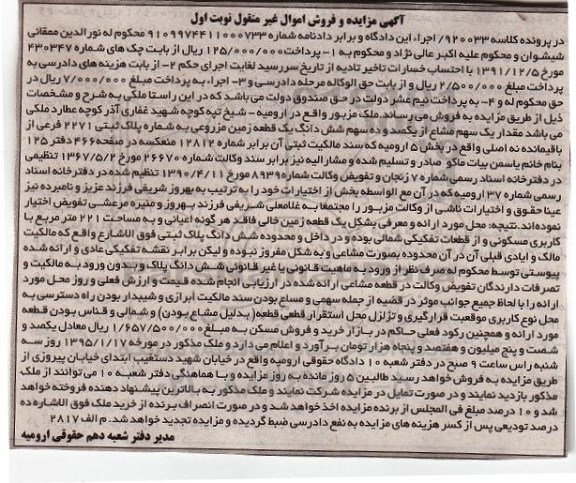 آگهی مزایده و فروش اموال غیر منقول نوبت اول
در پرونده کلاسه ۹۲۰۰۳۳/ اجراء این دادگاه و برابر دادنامه شماره ۹۱۰۹۹۷۴۴۱۱۰۰۰۷۳۳ محکوم له نورالدین ممقانی
شیشوان و محکوم علیه اکبر عالی نژاد و محکوم به ۱- پرداخت۱۲۵/۰۰۰/۰۰۰ ریال از بابت چک های شماره ۴۳۰۳۴۷
مورخ ۱۳۹۱/۱۲/۵ با احتساب خسارات تاخیر تادیه از تاریخ سررسید لغایت اجرای حکم ۲- از بابت هزینه های دادرسی به
پرداخت مبلغ ۲/۵۰۰/۰۰۰ ریال و از بابت حق الوکاله مرحله دادرسی و ۳- اجراء به پرداخت مبلغ ۷/۰۰۰/۰۰۰ ریال در
حق محکوم له و ۴- به پرداخت نیم عشر دولت در حق صندوق دولت می باشد که در این راستا ملکی به شرح و مشخصات
ذیل از طریق مزایده به فروش می رساند. ملک مزبور واقع در ارومیه - شیخ تپه کوچه شهید غفاری آذر کوچه عطارد ملکی
می باشد مقدار یک سهم مشاع از یکصد و ده سهم شش دانگ یک قطعه زمین مزروعی به شماره پلاک ثبتی ۲۲۷۱ فرعی از
باقیمانده نه اصلی واقع در بخش ۵ ارومیه که سند مالکیت ثبتی آن برابر شماره ۱۲۸۱۲ منعکسه در صفحه ۴۶۶ دفتر ۱۲۵
بنام خانم یاسمن بیات ماکو صادر و تسلیم شده و مشارالیه نیز برابر سند وکالت شماره ۲۶۶۷۰ مورخ ۱۳۶۷/۵/۲ تنظیمی
در دفترخانه اسناد رسمی شماره ۷ زنجان و تفویض وکالت شماره ۸۹۳۹ مورخ ۱۳۹۰/۴/۱۱ تنظیم شده در دفترخانه اسناد
رسمی شماره ۳۷ ارومیه که در آن مع الواسطه بخش از اختیارات خود را به ترتیب به بهروز شریفی فرزند عزیز و نامبرده نیز
عینا حقوق و اختیارات ناشی از وکالت مزبور را مجتمعا به غلامعلی شریفی فرزند بهروز و منیره مرعشی تفویض اختیار
نموده اند. نتیجه: محل مورد ارائه و معرفی بشکل یک قطعه زمین خالی فاقد هر گونه اعیانی و به مساحت ۲۲۱ متر مربع با
کاربری مسکونی و از قطعات تفکیکی شمالی بوده و در داخل و محدوده شش دانگ پلاک ثبتی فوق الاشاره واقع که مالکیت
مالک و ایادی قبلی آن در آن محدوده بصورت مشاعی و به شکل مفروز نبوده و لیکن برابر نقشه تفکیکی عادی و ارائه شده
پیوستی توسط محکوم له صرف نظر از ورود به ماهیت قانونی یا غیر قانونی شش دانگ پلاک و بدون ورود به مالکیت و
تصرفات دارندگان تفویض وکالت در قطعه مشاعی ارائه شده در ارزیابی انجام شده قیمت و ارزش فعلی و روز محل مورد
ارائه را با لحاظ جمیع جوانب موثر در قضیه از جمله سهمی و مساع بودن سند مالکیت ابرازی و شیبدار بودن راه دسترسی به
محل نوع کاربری موقعیت قرارگیری و تزلزل محل استقرار قطعی قطعه (بدلیل مشاع بودن) و شمالی و قناس بودن قطعه
مورد ارائه و همچنین رکود فعلی حاکم در بازار خرید و فروش مسکن به مبلغ ۱/۶۵۷/۵۰۰/۰۰۰ ریال معادل یکصد و
شصت و پنج میلیون و هفتصد و پنجاه هزار تومان برآورد و اعلام می دارد و ملک مذکور در مورخه ۱۳۹۵/۱/۱۷ روز سه
شنبه راس ساعت ۹ صبح در دفتر شعبه ۱۰ دادگاه حقوقی ارومیه واقع در خیابان شهید دستغیب ابتدای خیابان پیروزی از
طریق مزایده به فروش خواهد رسید طالبین ۵ روز مانده به روز مزایده و با هماهنگی دفتر شعبه ۱۰ می توانند از ملک
مذکور بازدید نمایند و در صورت تمایل در مزایده شرکت نمایند و ملک مذکور به بالاترین پیشنهاد دهنده فروخته خواهد
شد و ۱۰ درصد مبلغ فی المجلس از برنده مزایده اخذ خواهد شد و در صورت انصراف برنده از خرید ملک فوق الاشاره ده
درصد تودیعی پس از کسر هزینه های مزایده به نفع دادرسی ضبط گردیده و مزایده تجدید خواهد شد. م الف ۲۸۱۷
مدیر دفتر شعبه دهم حقوقی ارومیه